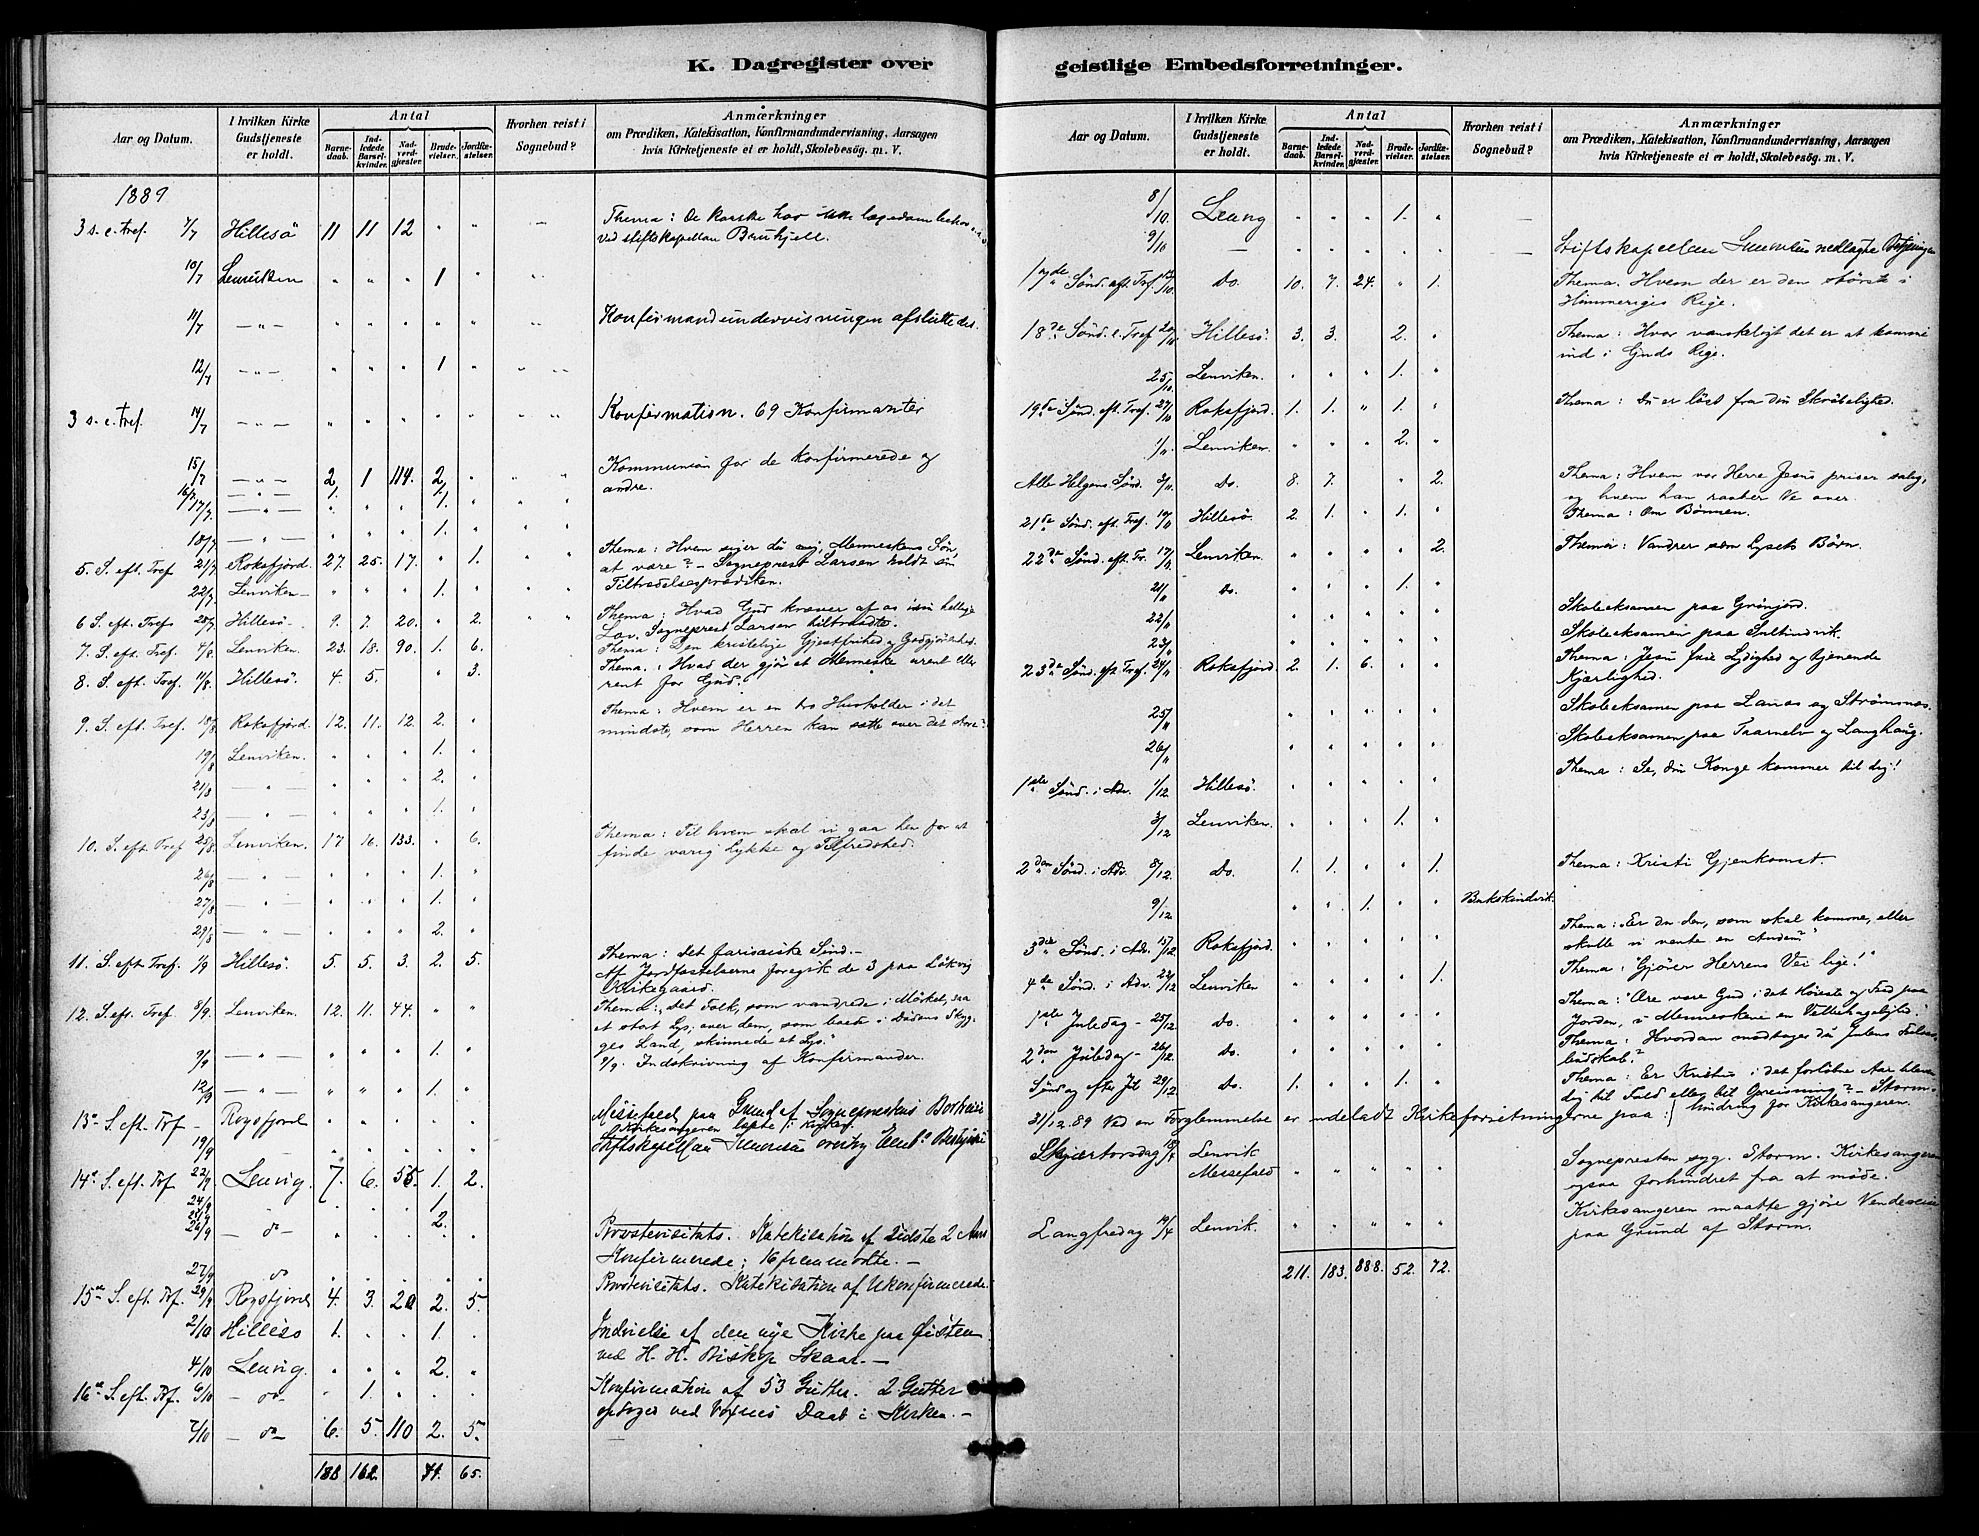 K. Dagregister over
Aar og Datum.
I hvilken Kirke Gudstjeneste er holdt.
Antal
Barnedaab.
Indledede Barselkvinder.
Nadverdgjæster.
Brudevielser.
Jordfæstelser.
Hvorhen reist i Sognebud?
Anmærkninger
om Prædiken, Katekisation, Konfirmandundervisning, Aarsagen
hvis Kirketjeneste ei er holdt, Skolebesøg. m. V.
1889
3 s. e. Tref. 7/7 Hillesö 11 11 12 " " — Thema: De Karske har ikke lægedom behov
ved stiftskapellan Bruhjell.
10/7 Lenviken " " " 1 " "
11/7 — " — " " " " " " Konfirmandundervisningen afsluttedes.
12/7 — " — " " " 1 " " "
3 s. e. Tref. 14/7 — " — " " " " " " " Konfirmation. 69 Konfirmanter
15/7 — " — 2 1 114. 2, " " " Kommunion for de Konfirmerede og
andre.
16/7 — " — 1. " " 1. " " "
17/7 — " — " " " "
18/7 — " — " " " 1. " " "
5. S. eft. Tref 21/7 Roksfjord. 27. 25. 17. " 1. " " Thema: Hvem siger du mig, Menneskens Søn,
at være? – Sogneprest Larsen holdt sin
Tiltrædelsesprædiken.
22/7. Lenviken — " " " 1. " " "
6 S. eft. Tref 28/7 Hillesö. 9. 7. 20. " 2. " " Thema: Hvad Gud kræver af os i sin hellige
Lov. Sogneprest Larsen tiltraadte.
7. S. eft. Tref. 4/8. Lenviken. 23. 18. 90. 1. 6. Thema: Den kristelige Gjestfrihed og Godgjörenhed.
8. S. eft. Tref. 11/8. Hillesö. 4. 5. " 3. Thema: Hvad der gjör et Menneske urent eller
rent for Gud.
9. S. eft. Tref. 18/8. Roksfjord. 12. 11. 12. 2. " Thema: Hvem er en tro Husholder i det
mindste, som Herren kan sætte over det store?
19/8 Lenviken. " " " 1. "
21/8 — " — " " " 2. "
23/8 — " — " " " 1. "
10. S. eft. Tref 25/8. Lenviken. 17 16. 133. " 6. Thema: Til hvem skal vi gaa hen for at
finde varig Lykke og Tilfredshed.
26/8 — " — " " " 1. "
27/8 — " — " " " 1. "
29/8 — " — " " " 2. "
11. S. eft. Tref. 1/9 Hillesö. 5. 5. 3. 2. 5. Thema: Det farisæiske Sind. –
Af Jordfæstelserne foregik de 3 paa Lökvig
Kirkegaard.
12. S. eft. Tref 8/9. Lenviken. 12. 11. 44. " " Thema: "Det Folk, som vandrede i Mörket, saa
et stort Lys; over dem, som boede i Dödens Skyg-
ges Land, skinnede et Lys."
9/9 — " — " " " 1. " 9/9. Indskrivning af Konfirmander.
12/9 — " — " " " 1. "
13de S. eft. Tref — Rogsfjord " " " " " Messefald paa Grund af Sogneprestens Bortreise
Kirkesangeren læste i Kirken.
19/9 " " " " " Stiftskapellan
14de S. eft. Tref 22/9 Lenvig. 7. 6. 55. 1. 2.
24/9 1
25/9
26/9 — do — " " " 2. " Provstevisitats. Katekisation af sidste 2 Aars
Konfirmerede; 16 fremmødte. –
27/9 do " " " " " Provstevisitats. Katekisation af Ukonfirmerede.
15de S. eft. Tref. 29/9 Rogsfjord 4. 3. 20 2. 5.
2/10 Hillesö 1. " " 1. " Indvielse af den nye Kirke paa Öisten
ved H. H. Biskop Skaar. —
4/10 Lenvig. " " " 2. "
16de S. eft. Tref. 6/10 — do — " 1. " " " Konfirmation af 53 Gutter. 2 Gutter
optoges ved Voxnes Daab i Kirken. —
7/10 — do — 6. 5. 110 2. 5.
188 162. 41. 65.
geistlige Embedsforretninger.
Aar og Datum.
I hvilken Kirke Gudstjeneste er holdt.
Antal
Barnedaab.
Indledede Barselkvinder.
Nadverdgjæster.
Brudevielser.
Jordfæstelser.
Hvorhen reist i Sognebud?
Anmærkninger
om Prædiken, Katekisation, Konfirmandundervisning, Aarsagen
hvis Kirketjeneste ei er holdt, Skolebesøg. m. V.
8/10 Lenvig " " " 1. " —
9/10 — " " " " " — Stiftskapellan nedlagte Bestyrelsen
17de Sönd. eft. Tref. 13/10 Do. 10. 7. 24. " 1. Thema. Hvem der er den störste i
Himmeriges Rige.
18de Sönd. e. Tref 20/10 Hillesö. 3. 3. 2. " Thema: Hvor vanskeligt det er at komme
ind i Guds Rige.
25/10 Lenviken. " " " 1. "
19de Sönd. eft. Tref. 27/10 Roksfjord. 1. 1. " 1. " Thema: Du er löst fra din Skröbelighed.
1/11. Lenviken. " " " 2. "
Alle Helgens Sönd. 3/11 Do. 8. 7. " 2. Thema: Hvem vor Herre Jesus priser salig,
og hvem han raaber Ve over.
21de Sönd. eft. Tref. 10/11 Hillesö. 2. 1. " 1. " Thema: Om Bönnen.
22de Sönd. eft. Tr. 17/11. Lenviken. " " " " 2. Thema: Vandrer som Lysets Börn.
21/11 Do. " " " 1. "
22/11 " " " " " Skoleeksamen paa Grönjord.
23/11 " " " " " Skoleeksamen paa Sultindvik.
23de Sönd. eft Tref. 24/11 Roksfjord. 2. 1. 6. " " Thema: Jesu frie Lydighed og tjenende
Kjærlighed.
25/11 " " " " " Skoleeksamen paa Lanas og Strömsnæs.
26/11 " " " " " Skoleeksamen paa Taarnelv og Langhaug.
1ste Sönd. i Adv. 1/12 Hillesö. " " " " " Thema: Se, din Konge kommer til dig!
3/12 Lenviken. " " " 1. "
2den Sönd. i Adv. 8/12. Do. 1. 1. " " 1. Thema: Kristi Gjenkomst.
9/12. " " 1. " " Bukskindvik.
3die Sönd. i Adv. 15/12 Roksfjord. " " " " " Thema: "Er du den, som skal komme, eller
skulle vi vente en Anden?"
4de Sönd. i Adv. 22/12 Lenviken " " " " 1. Thema: "Gjörer Herrens Vei lige!"
1ste Juledag — 25/12 Do. " " " " " Thema: "Ære være Gud i det Höieste og Fred paa
Jorden, i Menneskene en Velbehagelighed."
2den Juledag — 26/12. Do. " " " " " Thema: Hvordan modtager du Julens Frelses-
budskab?
Söndag efter Jul 29/12 Do. 1. " " 1. " Thema: Er Kristus i det forlöbne Aar bleven
dig til Fald eller til Opreisning? – Storm
hindring for Kirkesangeren.
31/12. 89 Ved en Forglemmelse er udeladt Kirkeforretningerne paa:
Skjærtorsdag 18/4 Lenvik
Messefald " " " " " Sognepresten syg. Storm. Kirkesangeren
ogsaa forhindret fra at möde.
Langfredag 19/4 Lenvik. " " " " " Kirkesangeren maatte gjöre Vendereise
paa Grund af Storm.
211. 183. 888. 52. 72.